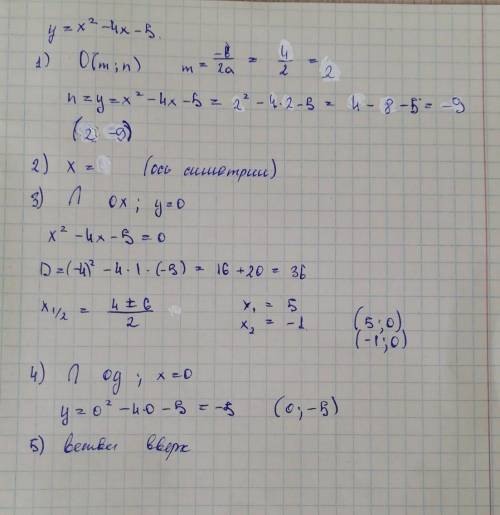 y = x² - 4x - 5.
1) O(m; n) m = -b/2a = 4/2 = 2
n = y = x² - 4x - 5 = 2² - 4·2 - 5 = 4 - 8 - 5 = -9
(2; -9)
2) x = (ось симотрии)
3) ∩ ox; y=0
x² - 4x - 5 = 0
D = (-4)² - 4·1·(-5) = 16 + 20 = 36
x1/2 = 4 ± 6 / 2 x₁ = 5
x₂ = -1 (5; 0)
(-1; 0)
4) ∩ oy; x=0
y = 0² - 4·0 - 5 = -5 (0; -5)
5) ветви вверх